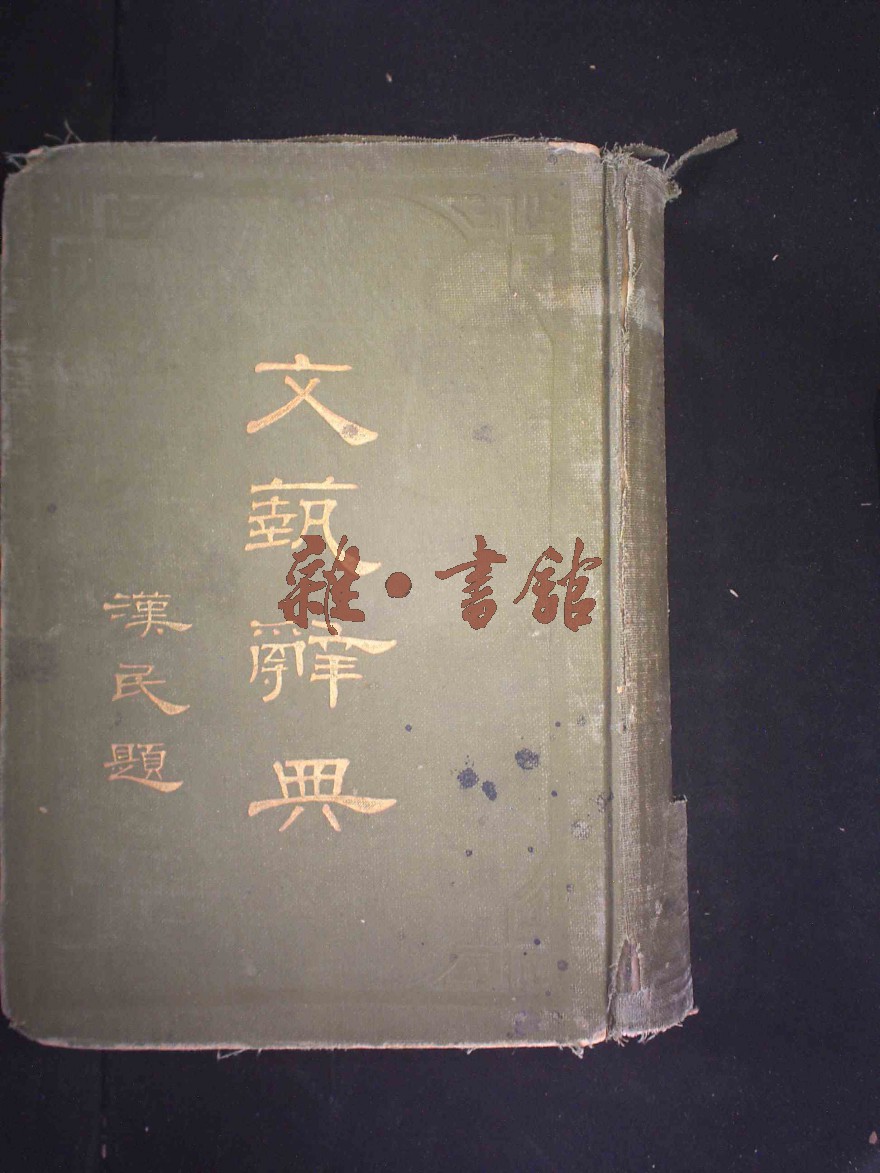 文藝辭典
漢民題
雜·書館